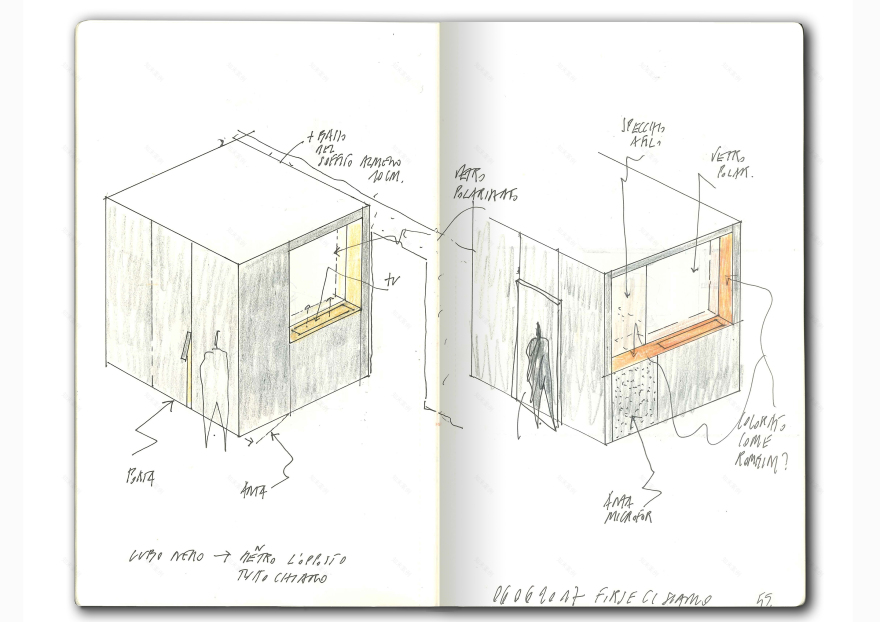 + BASSO
DEL
SOFFITTO ALMENO
10 CM.
VETRO
POLARIZZATO
SPECCHIO
A FILO
VETRO
POLAR.
TV
COLORATO
COME
?
PORTA
ANTA
ANTA
MICROFOR
CUBO NERO → DENTRO L'OPPOSTO
TUTTO CHIARO
06 06 2017 FORSE CI SIAMO 59.